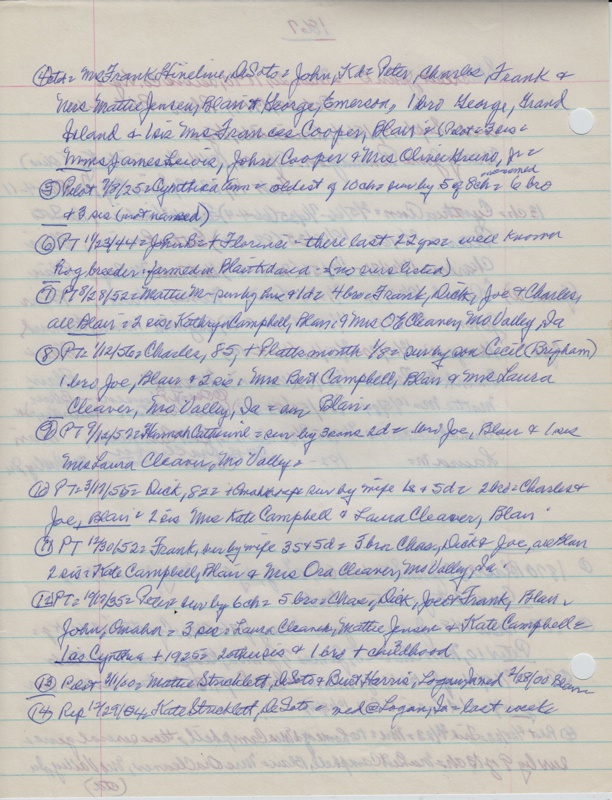 1867
④ Mrs Frank Hineline, DeSoto = John, Peter, Charles, Frank &
Mrs Mattie Jensen, Blair & George, Emerson, 1 bro George, Grand
Island & 1 sis Mrs Frances Cooper, Blair = (3 sis =
Mmes James Lewis, John Cooper & Mrs Oliver Jr =
unnamed
⑤ Pilot 7/8/25 = Cynthia Ann = oldest of 10 ch = sur by 5 of 8 ch = 6 bro
+ 3 sis (not named)
⑥ PT 11/23/44 = John B = + Florence = there last 22 yrs = well known
hog breeder = farmed in Blair = (no survs listed)
⑦ PT 8/28/52 = Mattie M = sur by & 1 d = 4 bro = Frank, Dick, Joe & Charles,
all Blair = 2 sis = Kathryn Campbell, Blair & Mrs O E Cleaver, Mo Valley, Ia
⑧ PT = 1/12/56 = Charles, 85, + Plattsmouth 1/8 = sur by son Cecil (Brigham)
1 bro Joe, Blair & 2 sis = Mrs Bert Campbell, Blair & Mrs Laura
Cleaver, Mo Valley, Ia = Blair
⑨ PT 9/12/57 = Hannah Catherine = sur by 3 sons 2 d = bro Joe, Blair & 1 sis
Mrs Laura Cleaver, Mo Valley =
⑩ PT = 3/17/55 = Dick, 82 = + Omaha sur by wife & 5 d = 2 bro = Charles &
Joe, Blair = 2 sis Mrs Kate Campbell & Laura Cleaver, Blair
⑪ PT 12/30/52 = Frank, sur by wife 3 S & 5 d = 3 bro Chas, Dick & Joe, all Blair
2 sis = Kate Campbell, Blair & Mrs Ora Cleaver, Mo Valley, Ia
⑫ PT = = Peter, sur by 6 ch = 5 bro = Chas, Dick, Joe & Frank, Blair,
John, Omaha = 3 sis = Laura Cleaver, Mattie Jensen & Kate Campbell =
1 sis Cynthia + 1925 = 2 other sis & 1 bro + childhood
⑬ Pilot = Mattie Stricklett, DeSoto & Burt Harris, Logan, Ia med 2/28/00 Blair
⑭ Rep 12/29/04 = Kate Stricklett, DeSoto = med @ Logan, Ia = last week